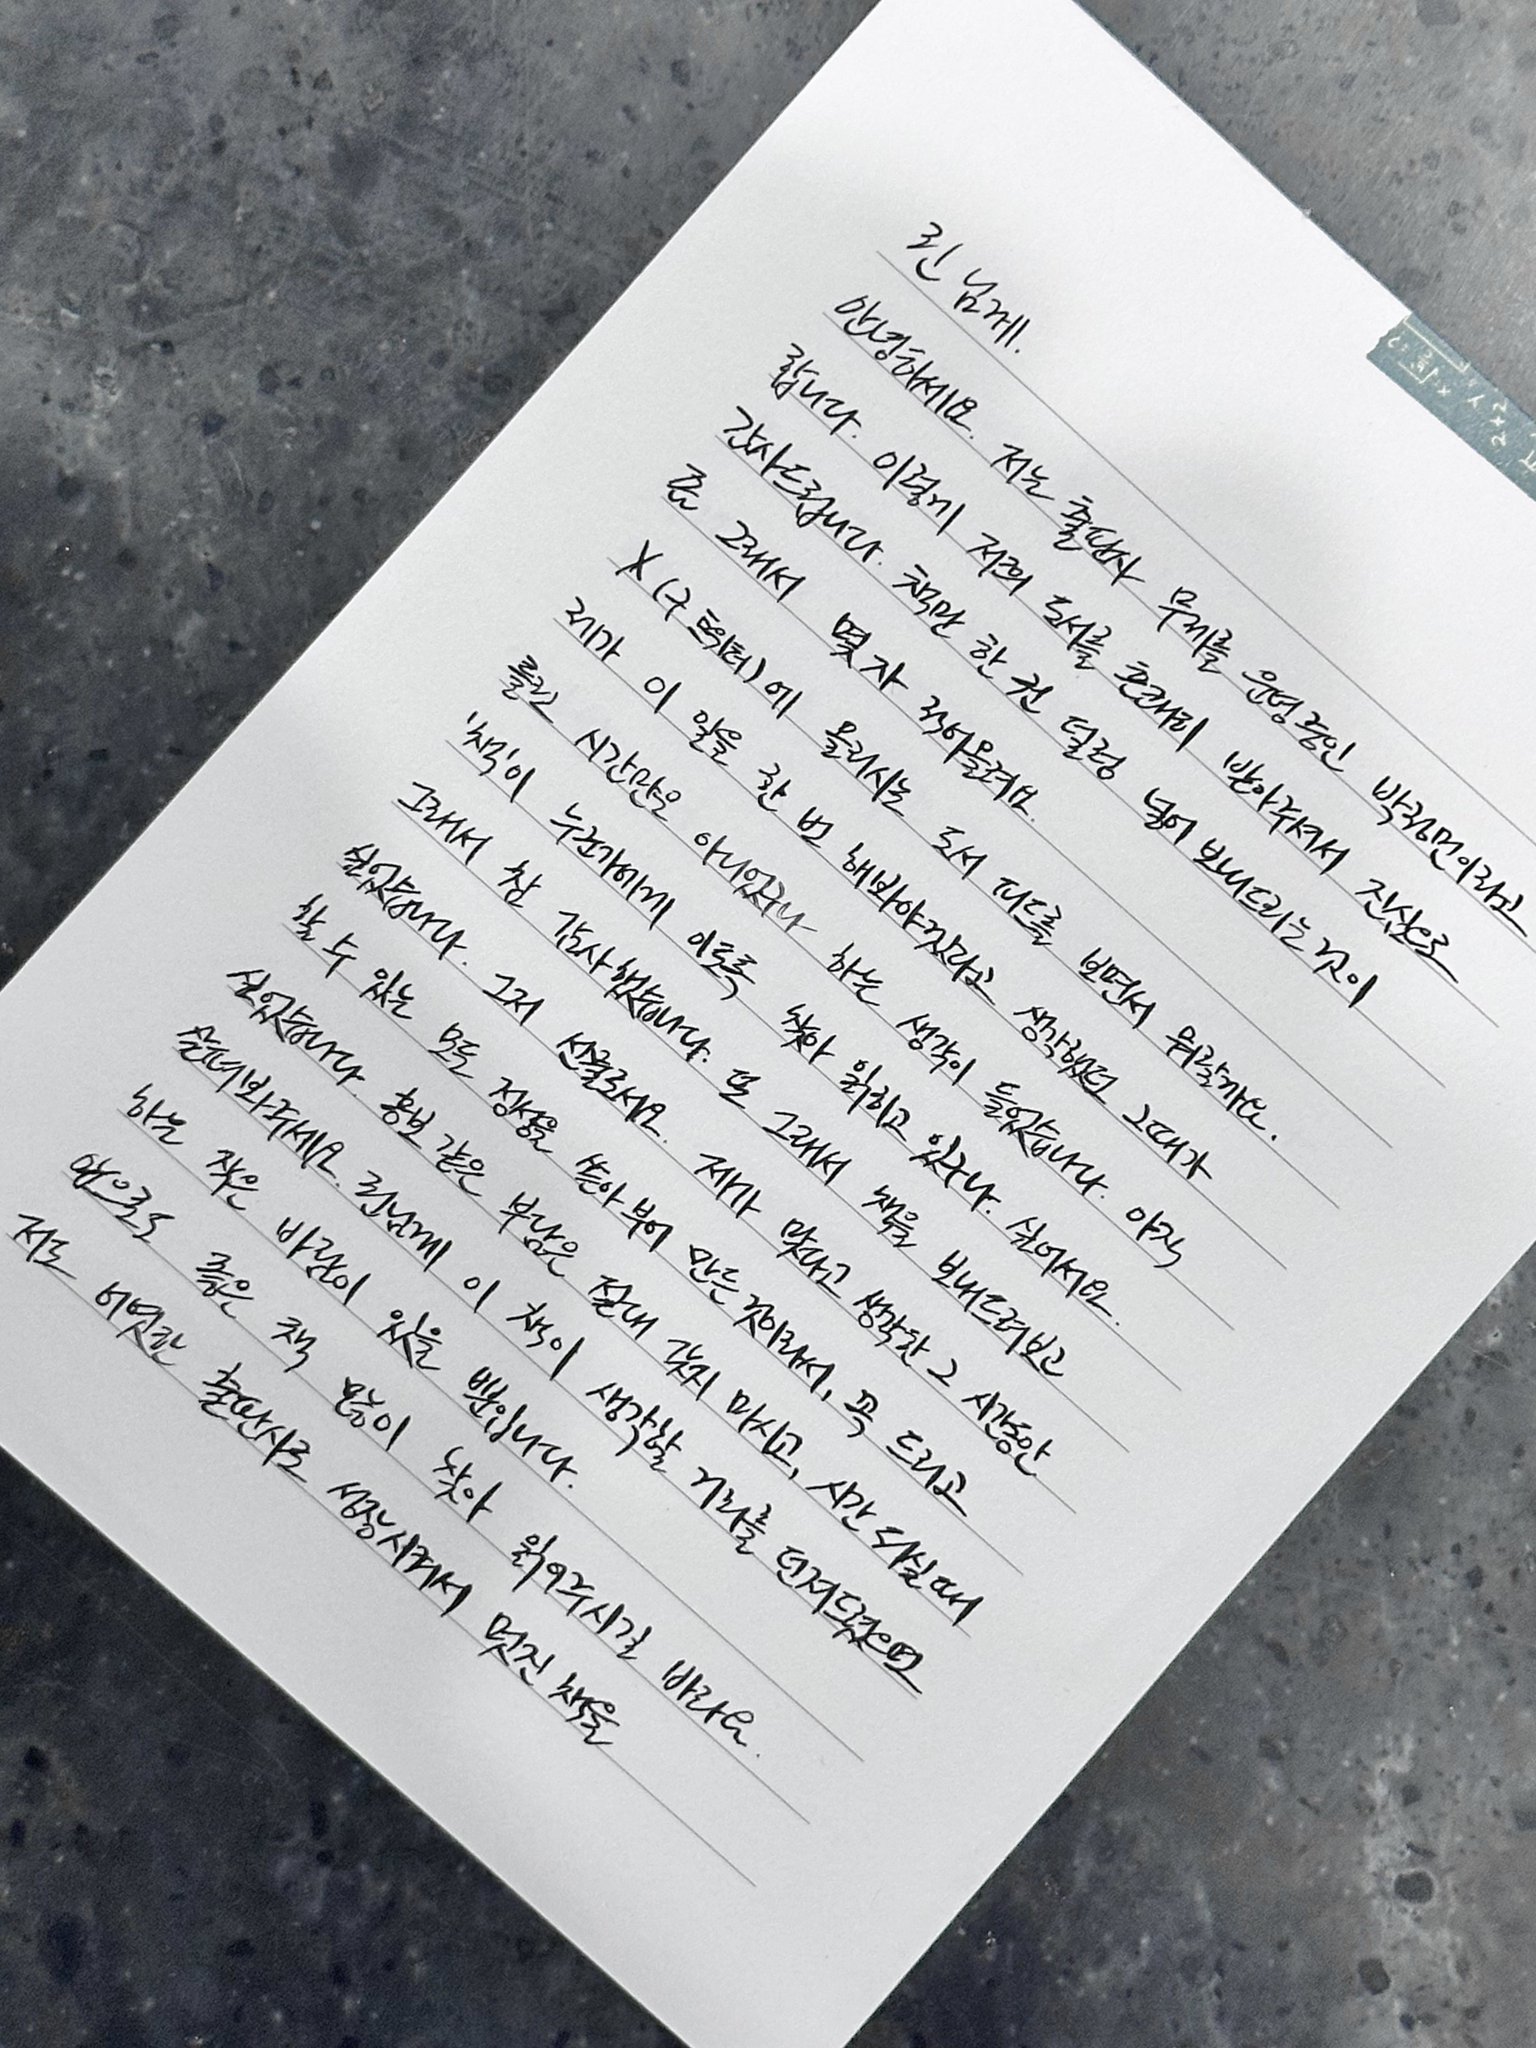 린 님께.
안녕하세요. 저는 출판사 무제를 운영중인 박정민이라고
합니다. 이렇게 저의 도서를 흔쾌히 받아주셔서 진심으로
감사드립니다. 책만 한 권 덜렁 넣어 보내드리는 것이
좀 그래서 몇 자 적어올려요.
X(구 트위터)에 올리시는 도서 피드를 보면서 뭐랄까요.
제가 이 일을 한 번 해봐야겠다고 생각했던 그때가
틀린 시간만은 아니었구나 하는 생각이 들었습니다. 아직
'책'이 누군가에게 이토록 찾아 읽히고 있구나. 싶어서요.
그래서 참 감사했습니다. 또 그래서 책을 보내드려보고
싶었습니다. 그저 선물로세요. 제가 맞다고 생각한 그 시간동안
할 수 있는 모든 정성을 쏟아부어 만든 것이라서, 꼭 드리고
싶었습니다. 홍보 같은 부담은 절대 갖지 마시고, 시간 되실때
슬쩍봐주세요. 린님께 이 책이 생각할 거리를 던져드렸으면
하는 작은 바람이 있을 뿐입니다.
앞으로도 좋은 책 많이 찾아 읽어주시길 바라요.
저도 어엿한 출판사로 성장시켜서 멋진 책을